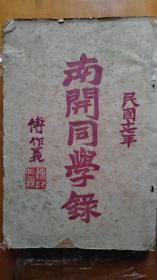 民國十七年
南開同學錄
傅作義